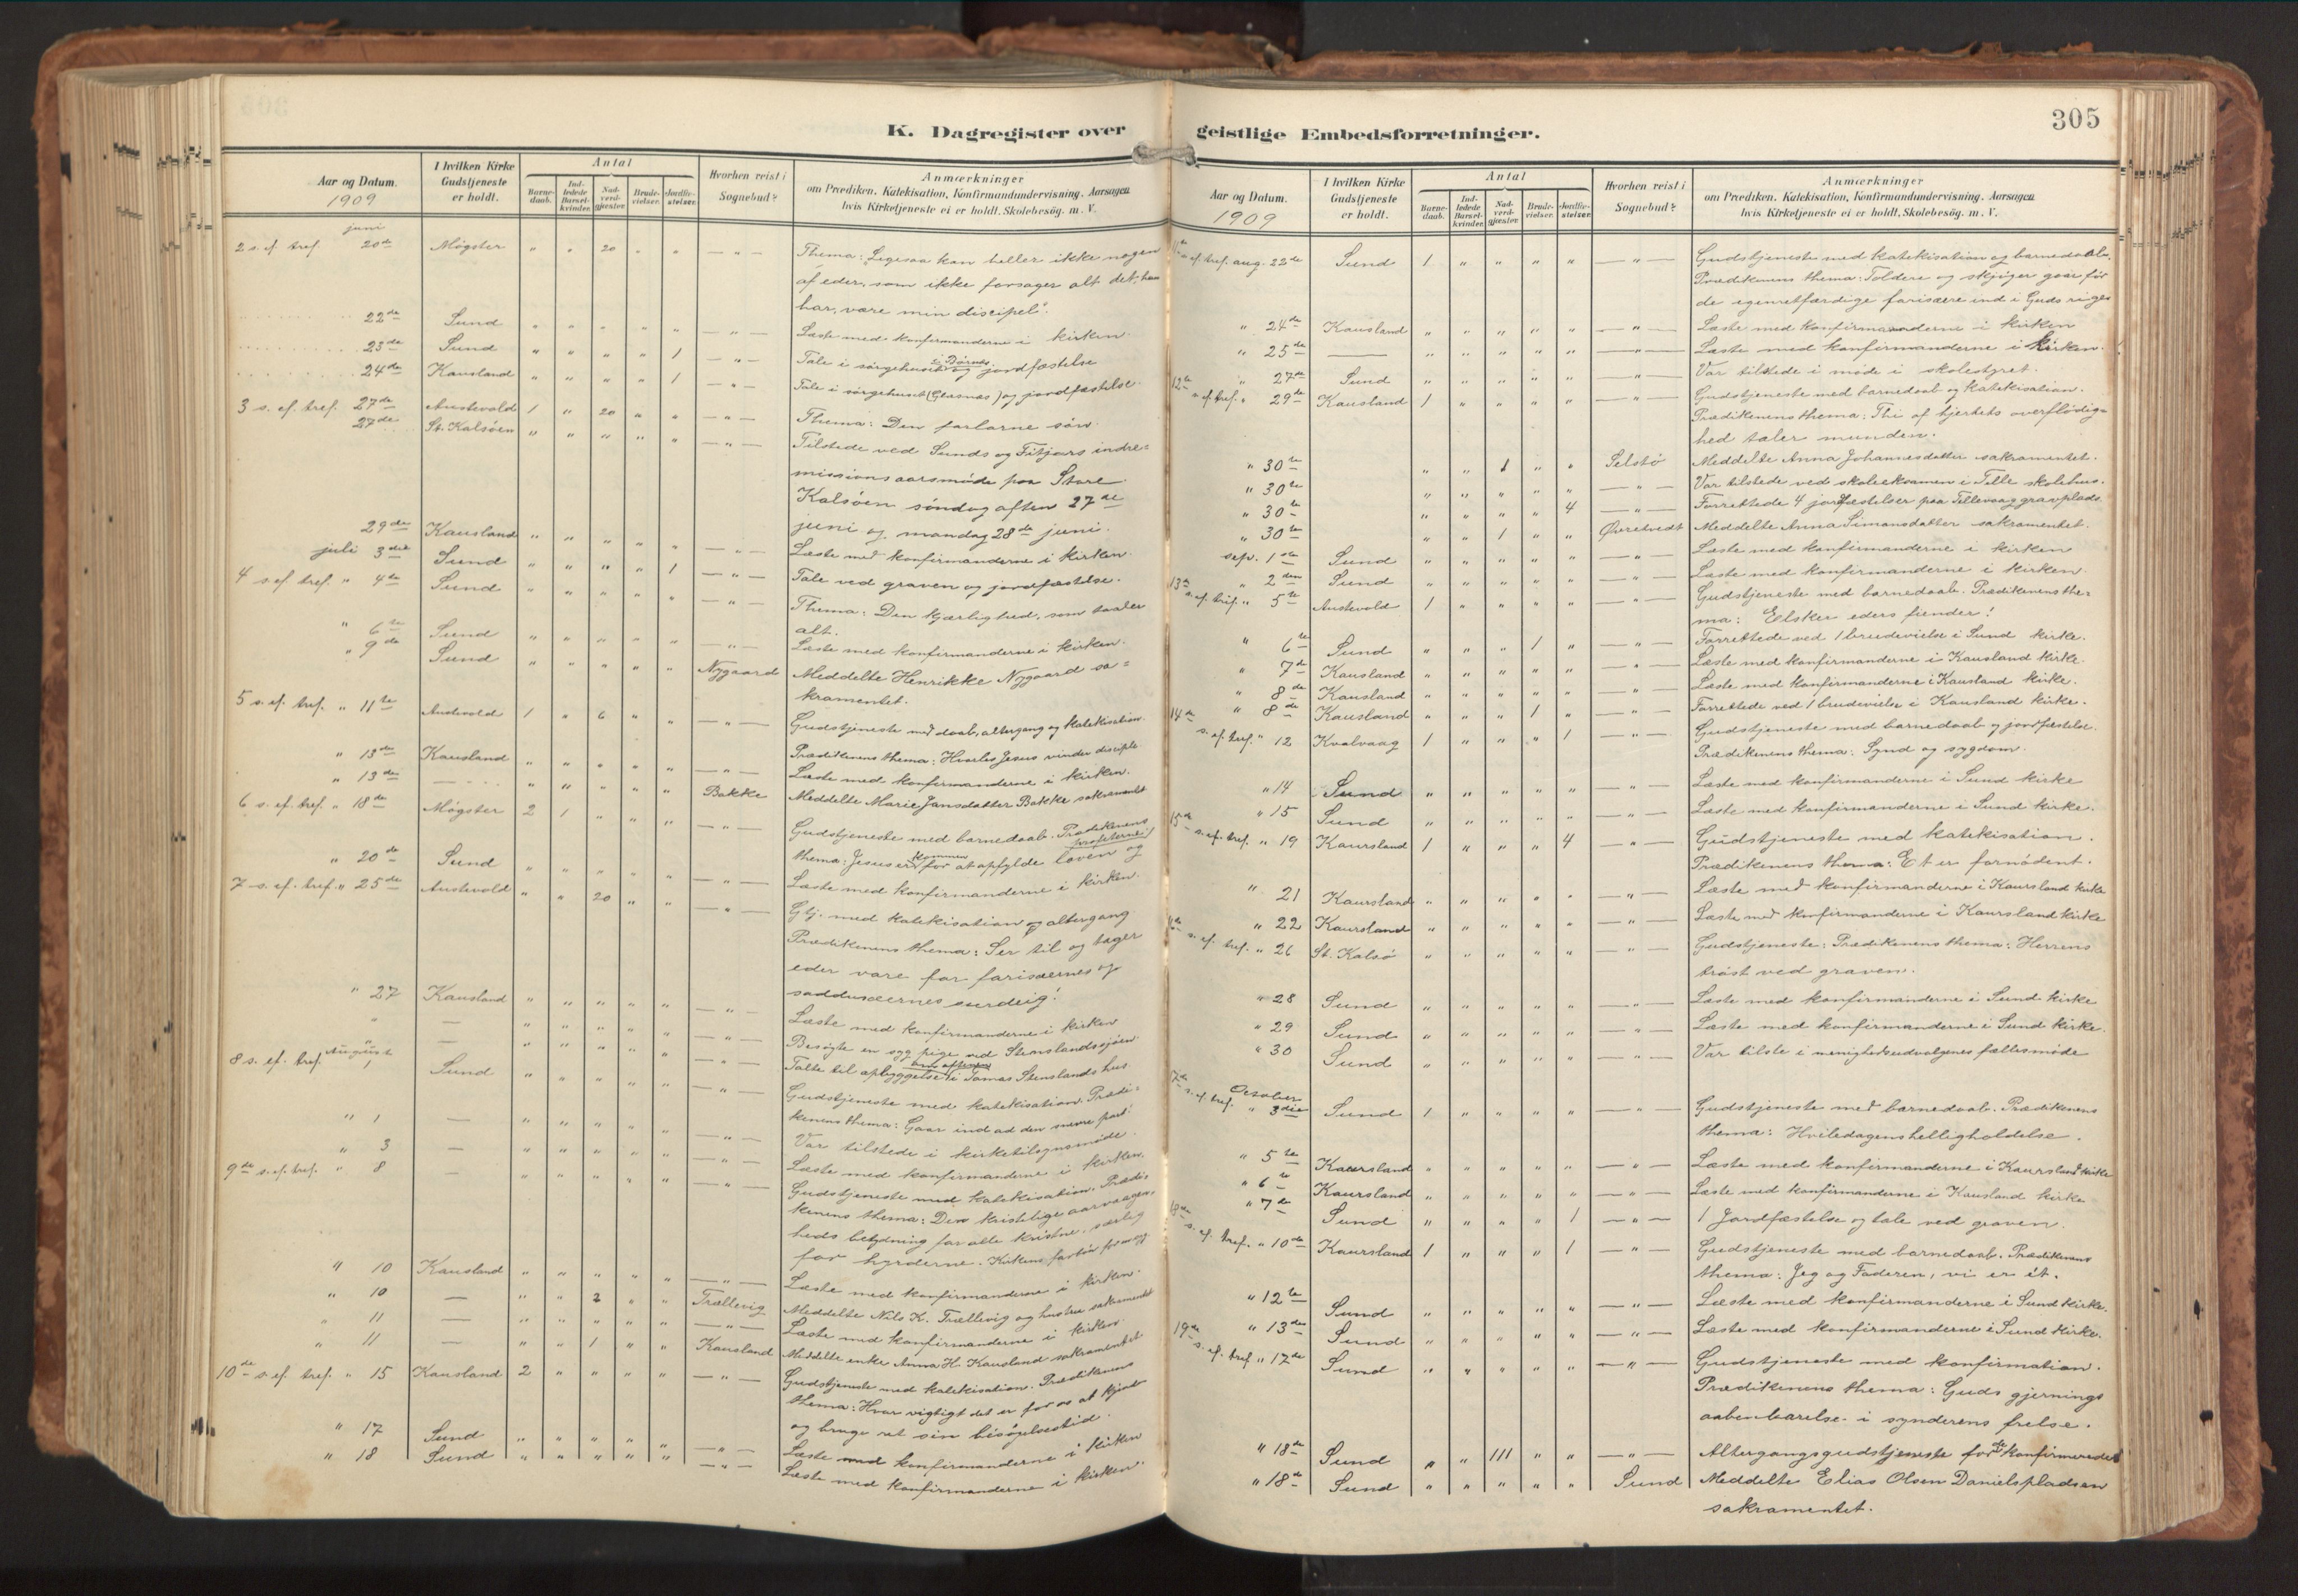 K. Dagregister over geistlige Embedsforretninger.
305
Aar og Datum.
1909
I hvilken Kirke Gudstjeneste er holdt.
Antal
Barnedaab.
Indledede Barselkvinder.
Nadverdgjæster.
Brudevielser.
Jordfæstelser.
Hvorhen reist i Sognebud?
Anmærkninger
om Prædiken, Katekisation, Konfirmandundervisning, Aarsagen
hvis Kirketjeneste ei er holdt, Skolebesøg. m. V.
juni
2 s. ef. tref. 20de Møgster " " 20 " " — " — Thema: "Ligesaa kan heller ikke nogen
af eder, som ikke forsager alt det, han
har, være min discipel".
22de Sund " " " " " — " — Læste med konfirmanderne i kirken.
23de Sund " " " " 1 — " — Tale i sørgehuset og jordfæstelse
24de Kausland " " " " 1 — " — Tale i sørgehuset og jordfæstelse.
3 s. ef. tref. 27de Austevold 1 " 20 " " — " — Thema: Den fortorne søn.
27de St. Kalsøen " " " " " — " — Tilstede ved Sunds og Fitjars indre=
missions aarsmøde paa Store
Kalsøen søndag aften 27de
juni og mandag 28de juni.
29de Kausland " " " " " — " — Læste med konfirmanderne i kirken.
juli 3die Sund " " " " 1 — " — Tale ved graven og jordfæstelse.
4 s. ef. tref. " 4de Sund " " " " " — " — Thema: Den kjærlighed, som taaler
alt.
" 6te Sund " " " " " — " — Læste med konfirmanderne i kirken.
" 9de Sund " " " " " Nygaard Meddelte Henrikke Nygaard sa=
kramentet.
5 s. ef. tref. " 11te Austevold 1 " 6 " " — " — Gudstjeneste med daab, altergang og katekisation.
Prædikenens thema: Hvorledes Jesus vinder disciple.
" 13de Kausland " " " " " — " — Læste med konfirmanderne i kirken.
" 13de — " " " " " Bakke Meddelte Marie Jansdatter Bakke sakramentet
6 s. ef. tref. " 18de Møgster 2 1 " " " — " — Gudstjeneste med barnedaab. Prædikenens
thema: Jesus er kommen for at opfylde loven og profeterne!
" 20de Sund " " " " " — " — Læste med konfirmanderne i kirken.
7 s. ef. tref. " 25de Austevold " " 20 " " — " — Gtj. med katekisation og altergang
Prædikenens thema: Ser til og tager
eder vare for farisæernes og
sadducæernes surdeig!
" 27 Kausland " " " " " — " — Læste med konfirmanderne i kirken
" — " " " " " — " — Besøgte en syg pige ved Stenslandssjøen.
" — " " " " " — " — Talte til opbyggelse om aftenen i Tomas Stenslands hus.
8 s. ef. tref. August 1 Sund " " " " " — " — Gudstjeneste med katekisation. Prædi=
kenens thema: Gaar ind ad den snevre port!
" 1 — " " " " " — " — Var tilstede i kirketilsynsmøde.
" 3 — " " " " " — " — Læste med konfirmanderne i kirken.
9de s. ef. tref. " 8 — " " " " " — " — Gudstjeneste med katekisation. Prædi=
kenens thema: Den kristelige aarvaagen-
heds betydning for alle kristne, særlig
for hyrderne.
" 10 Kausland " " " " " — " — Læste med konfirmanderne i kirken.
" 10 — " " 2 " " Trællevig Meddelte Nils K. Trællevig og hustru sakramentet
" 11 — " " " " " — " — Læste med konfirmanderne i kirken.
" 11 — " " 1 " " Kausland Meddelte enke Anna H. Kausland sakramentet
10de s. ef. tref. " 15 Kausland 2 " " " " — " — Gudstjeneste med katekisation. Prædikenens
thema: Hvor vigtigt det er for os at kjende
og bruge ret sin besøgelsestid.
" 17 Sund " " " " " — " — Læste med konfirmanderne i kirken
" 18 Sund " " " " " — " — Læste med konfirmanderne i kirken.
Aar og Datum.
1909
I hvilken Kirke Gudstjeneste er holdt.
Antal
Barnedaab.
Indledede Barselkvinder.
Nadverdgjæster.
Brudevielser.
Jordfæstelser.
Hvorhen reist i Sognebud?
Anmærkninger
om Prædiken, Katekisation, Konfirmandundervisning, Aarsagen
hvis Kirketjeneste ei er holdt, Skolebesøg. m. V.
11te s. ef. tref. aug. 22de Sund 1 " " " " — " — Gudstjeneste med katekisation og barnedaab.
Prædikenens thema: Toldere og skjøger gaar før
de egenretfærdige farisæere ind i Guds rige.
" 24de Kausland " " " " " — " — Læste med konfirmanderne i kirken
" 25de — " " " " " — " — Læste med konfirmanderne i kirken.
" 27de Sund " " " " " — " — Var tilstede i møde i skolestyret.
12te s. ef. tref. " 29de Kausland 1 " " " " — " — Gudstjeneste med barnedaab og katekisation.
Prædikenens thema: Thi af hjertets overflødig=
hed taler munden.
" 30te " " 1 " " Selstø Meddelte Anna Johannesdatter sakramentet.
" 30te " " " " " — " — Var tilstede ved skoleeksamen i Telle skolehus.
" 30te " " " " 4 — " — Forrettede 4 jordfæstelser paa Tellevaag gravplads
" 30te " " 1 " " Øvretvedt Meddelte Anna Simonsdatter sakramentet.
sep. 1ste Sund " " " " " — " — Læste med konfirmanderne i kirken
" 2den Sund " " " " " — " — Læste med konfirmanderne i kirken.
13de s. ef. tref. " 5te Austevold 1 " " " " — " — Gudstjeneste med barnedaab. Prædikenens the=
ma: Elsker eders fiender!
" 6te Sund " " " 1 " — " — Forrettede ved 1 brudevielse i Sund kirke.
" 7de Kausland " " " " " — " — Læste med konfirmanderne i Kausland kirke.
" 8de Kausland " " " " " — " — Læste med konfirmanderne i Kausland kirke.
" 8de Kausland " " " 1 " — " — Forrettede ved 1 brudevielse i Kausland kirke.
14de s. ef. tref. " 12 Kvalvaag 1 " " " 1 — " — Gudstjeneste med barnedaab og jordfæstelse.
Prædikenens thema: Synd og sygdom.
" 14 Sund " " " " " — " — Læste med konfirmanderne i Sund kirke
" 15 Sund " " " " " — " — Læste med konfirmanderne i Sund kirke.
15de s. ef. tref. " 19 Kaursland 1 " " " 4 — " — Gudstjeneste med katekisation.
Prædikenens thema: Et er fornødent.
" 21 Kaursland " " " " " — " — Læste med konfirmanderne i Kaursland kirke
" 22 Kaursland " " " " " — " — Læste med konfirmanderne i Kaursland kirke
16de s. ef. tref. " 26 St. Kalsø " " " " " — " — Gudstjeneste: Prædikenens thema: Herrens
trøst ved graven.
" 28 Sund " " " " " — " — Læste med konfirmanderne i Sund kirke
" 29 Sund " " " " " — " — Læste med konfirmanderne i Sund kirke.
" 30 Sund " " " " " — " — Var tilste i menighedsudvalgenes fællesmøde
October
17de s. ef. tref. " 3die Sund 1 " " " " — " — Gudstjeneste med barnedaab. Prædikenens
thema: Hviledagens helligholdelse.
" 5te Kaursland " " " " " — " — Læste med konfirmanderne i Kaursland kirke
" 6te Kaursland " " " " " — " — Læste med konfirmanderne i Kausland kirke
" 7de Sund " " " " 1 — " — 1 Jordfæstelse og tale ved graven.
18de s. ef. tref. " 10de Kaursland 1 " " " 1 — " — Gudstjeneste med barnedaab. Prædikenens
thema: Jeg og Faderen, vi er ét.
" 12te Sund " " " " " — " — Læste med konfirmanderne i Sund kirke.
" 13de Sund " " " " " — " — Læste med konfirmanderne i Sund kirke.
19de s. ef. tref. " 17de Sund " " " " " — " — Gudstjeneste med konfirmation.
Prædikenens thema: Guds gjernings
aabenbarelse i synderens frelse.
" 18de Sund " " 111 " " — " — Altergangsgudstjeneste for de konfirmerede
" 18de Sund " " " " " Sund Meddelte Elias Olsen Danielspladsen
sakramentet.